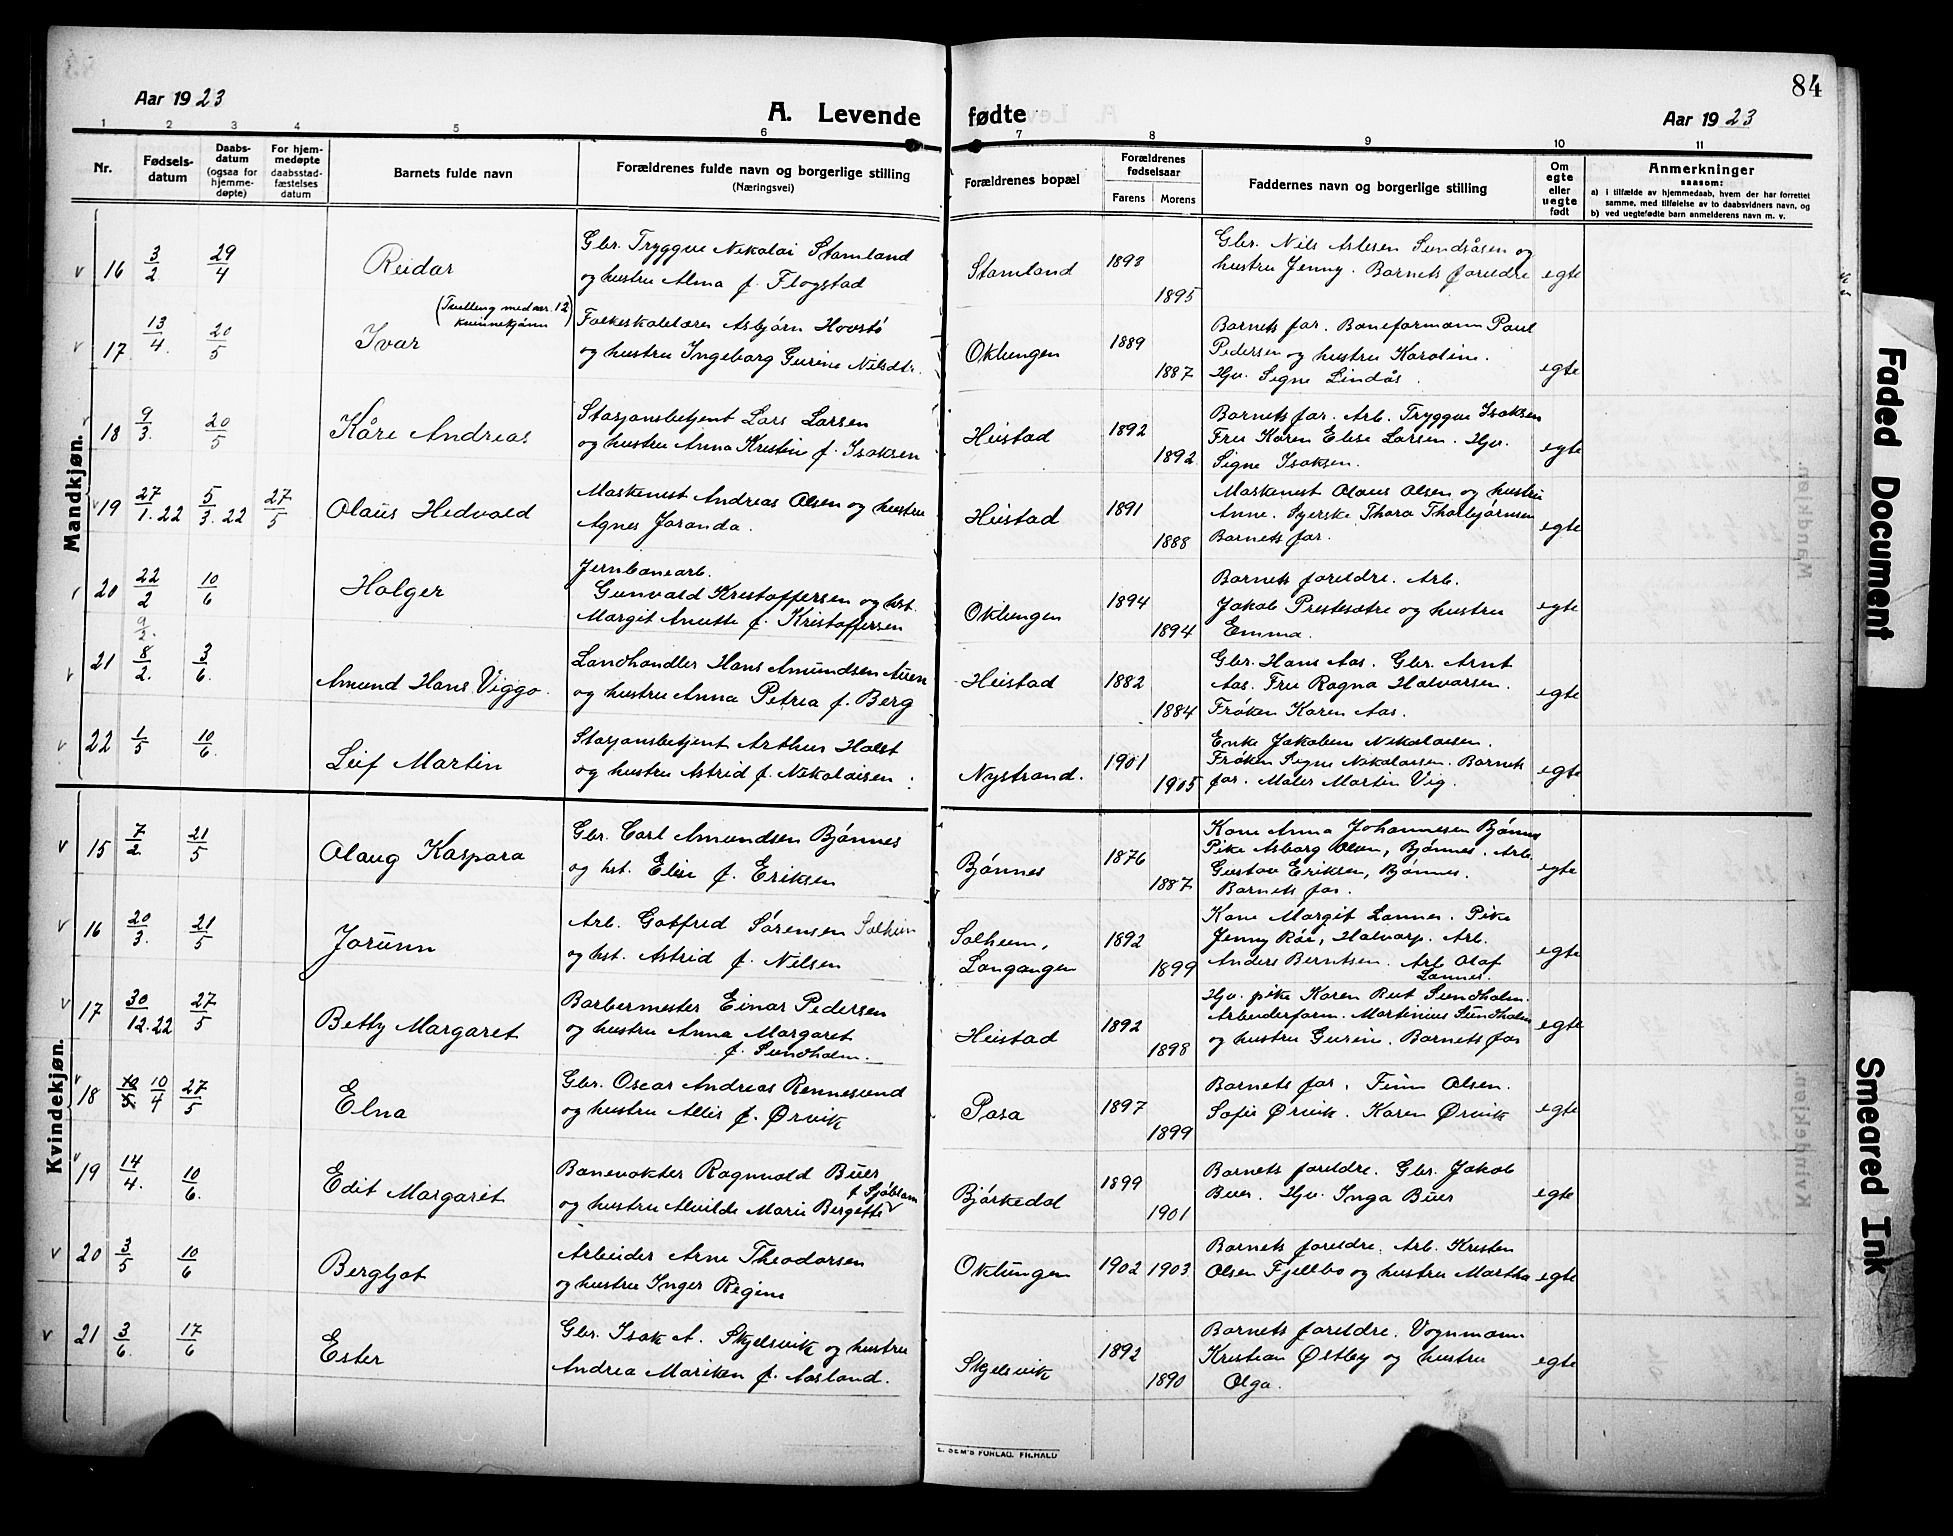 84
Aar 1923
A. Levende fødte
Aar 1923
1 2 3 4 5 6 7 8 9 10 11
Nr.
Fødsels-
datum
Daabs-
datum
(ogsaa for
hjemme-
døpte)
For hjem-
medøpte
daabsstad-
fæstelses
datum
Barnets fulde navn
Forældrenes fulde navn og borgerlige stilling
(Næringsvei)
Forældrenes bopæl
Forældrenes
fødselsaar
Farens Morens
Faddernes navn og borgerlige stilling
Om
egte
eller
uegte
født
Anmerkninger
saasom:
a) i tilfælde av hjemmedaab, hvem der har forrettet
samme, med tilføielse av to daabsvidners navn, og
b) ved uegtefødte barn anmelderens navn m. v.
Mandkjøn.
v 16 3/2 29/4 Reidar
Gbr. Tryggve Nikolai Stamland
og hustru Alma f. Flogstad
Stamland 1893 1895
Gbr. Nils Aslesen Sundsåsen og
hustru Jenny. Barnets foreldre
egte
v 17 13/4. 20/5 Ivar
(Tvilling med nr. 12
kvinnekjønn)
Folkeskolelærer Asbjørn Hovstø
og hustru Ingeborg Gurine Nilsdtr.
Oklungen 1889 1887
Barnets far. Baneformann Paul
Pedersen og hustru Karoline.
Hjv. Signe Lindås.
egte
v 18 9/3. 20/5 Kåre Andreas
Stasjonsbetjent Lars Larsen
og hustru Anna Kristine f. Isaksen
Heistad 1892 1892
Barnets far. Arb. Tryggve Isaksen
Fru Karen Elise Larsen. Hjv.
Signe Isaksen.
egte
v 19 27/1.22 5/3.22 27/5 Olaus Hedvald
Maskinist Andreas Olsen og hustru
Agnes Joranda.
Heistad 1891 1888
Maskinist Olaus Olsen og hustru
Anne. Syerske Thora Thorbjørnsen
Barnets far.
egte
v 20 22/2 10/6 Holger
Jernbanearb.
Gunvald Kristoffersen og hst.
Margit Anette f. Kristoffersen
Oklungen 1894 1894
Barnets foreldre. Arb.
Jakob Prestesætre og hustru
Emma.
egte
9/2.
v 21 8/2. 3/6 Amund Hans Viggo.
Landhandler Hans Amundsen Auen
og hustru Anna Petrea f. Berg
Heistad 1882 1884
Gbr. Hans Aas. Gbr. Arnt
Aas. Fru Ragna Halvorsen.
Frøken Karen Aas.
egte
v 22 1/5 10/6 Leif Martin
Stasjonsbetjent Arthur Holst
og hustru Astrid f. Nikolaisen.
Nystrand. 1901 1905
Enke Jakobine Nikolaisen.
Frøken Signe Nikolaisen. Barnets
far. Maler Martin Vig.
egte
Kvindekjøn.
v 15 7/2. 21/5 Olaug Kaspara
Gbr. Carl Amundsen Bjønnes
og hst. Elise f. Eriksen
Bjønnes 1876 1887
Kone Anna Johannesen Bjønnes
Pike Asborg Olsen, Bjønnes. Arb.
Gustav Eriksen, Bjønnes.
Barnets far.
egte
v 16 20/3. 21/5 Jorunn
Arb. Gotfred Sørensen Solheim
og hst. Astrid f. Nilsen
Solheim,
Langangen 1892 1899
Kone Margit Lannes. Pike
Jenny Røi, Halvarp. Arb.
Anders Berntsen. Arb Olaf
Lannes.
egte
v 17 30/12.22 27/5 Betty Margaret
Barbermester Einar Pedersen
og hustru Anna Margaret
f. Sundholm.
Heistad 1892 1898
Hjv. pike Karen Rut Sundholm.
Arbeiderform. Martinius Sundholm
og hustru Gurine. Barnets far
egte
v 18 10/4 27/5 Elna
Gbr. Oscar Andreas Rennesund
og hustru Allis f. Ørvik
Pasa 1897 1899
Barnets far. Finn Olsen.
Sofie Ørvik. Karen Ørvik
egte
v 19 14/4. 10/6. Edit Margaret
Banevokter Ragnvald Buer
f. Sjøblom
og hustru Alvilde Marie Bergette
Bjørkedal 1899 1901
Barnets foreldre. Gbr. Jakob
Buer. Hjv. Inga Buer
egte
v 20 3/5 10/6 Bergljot
Arbeider Arne Theodorsen
og hustru Inger Regine
Oklungen 1902 1903
Barnets foreldre. Arb. Kristen
Olsen Fjellbo og hustru Martha
egte
v 21 3/6. 17/6 Ester
Gbr. Isak A. Skjelsvik og hustru
Andrea Mariken f. Aasland.
Skjelsvik 1892 1890
Barnets foreldre. Vognmann
Kristian Østby og hustru
Olga.
egte
E. SEM'S FORLAG. FR.HALD
Faded Document
Smeared Ink